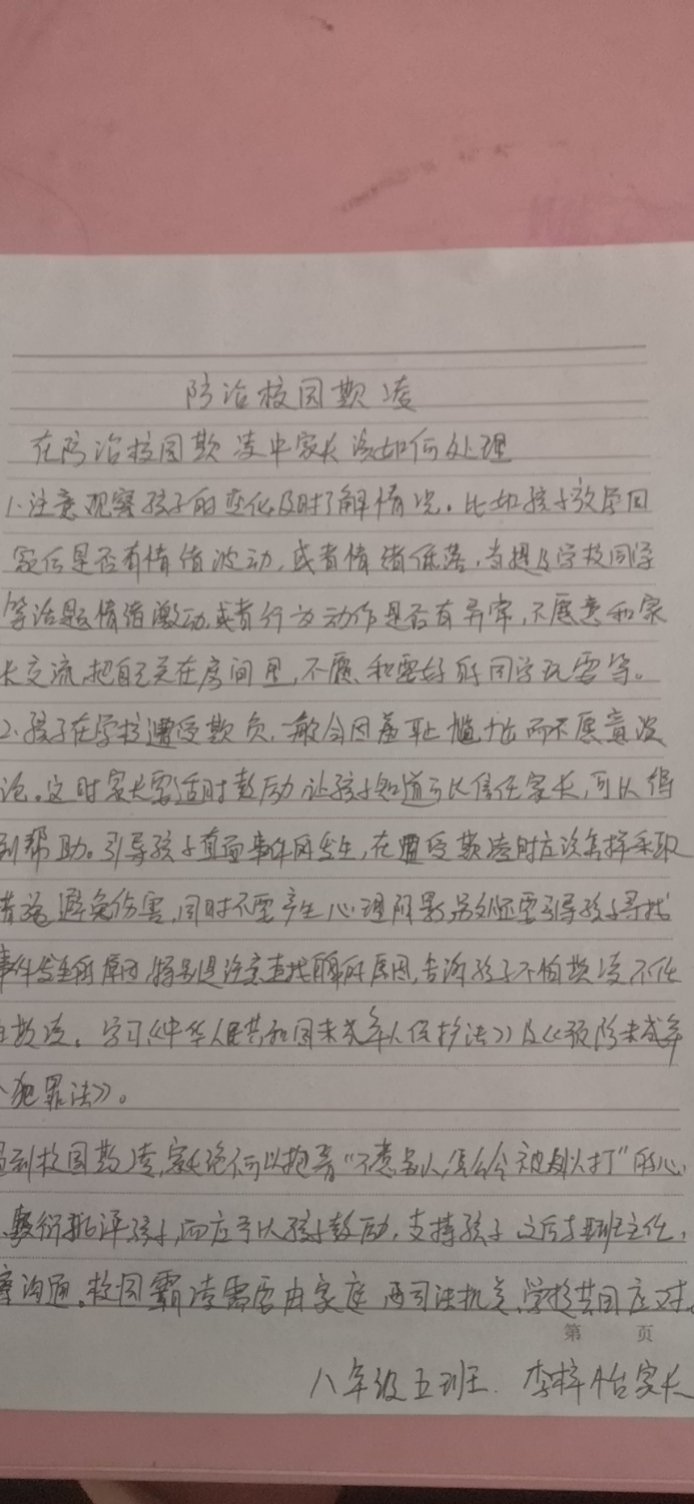 防治校园欺凌
在防治校园欺凌中家长该如何处理
1.注意观察孩子的变化及时了解情况。比如孩子放学回
家后是否有情绪波动,或者情绪低落,当提及学校同学
等话题情绪激动,或者行为动作是否有异常,不愿意和家
长交流,把自己关在房间里,不愿和要好的同学玩耍等。
2.孩子在学校遭受欺负,一般会因羞耻尴尬而不愿意谈
论。这时家长要适时鼓励让孩子知道可以信任家长,可以得
到帮助。引导孩子直面事件的发生,在遭受欺凌时应该怎样采取
措施避免伤害,同时不要产生心理阴影,另外还要引导孩子寻找
事件发生的原因,特别是注意查找自身的原因,告诉孩子不怕欺凌不作
欺凌。学习《中华人民共和国未成年人保护法》及《预防未成年
人犯罪法》。
遇到校园欺凌,家长绝不可以抱着“不惹别人,怎么会被别人打”的心
敷衍批评孩子,而应予以孩子鼓励,支持孩子之后与班主任,
沟通。校园霸凌需要由家庭 两司法机关,学校共同应对。
第 页
八年级五班 李梓怡家长